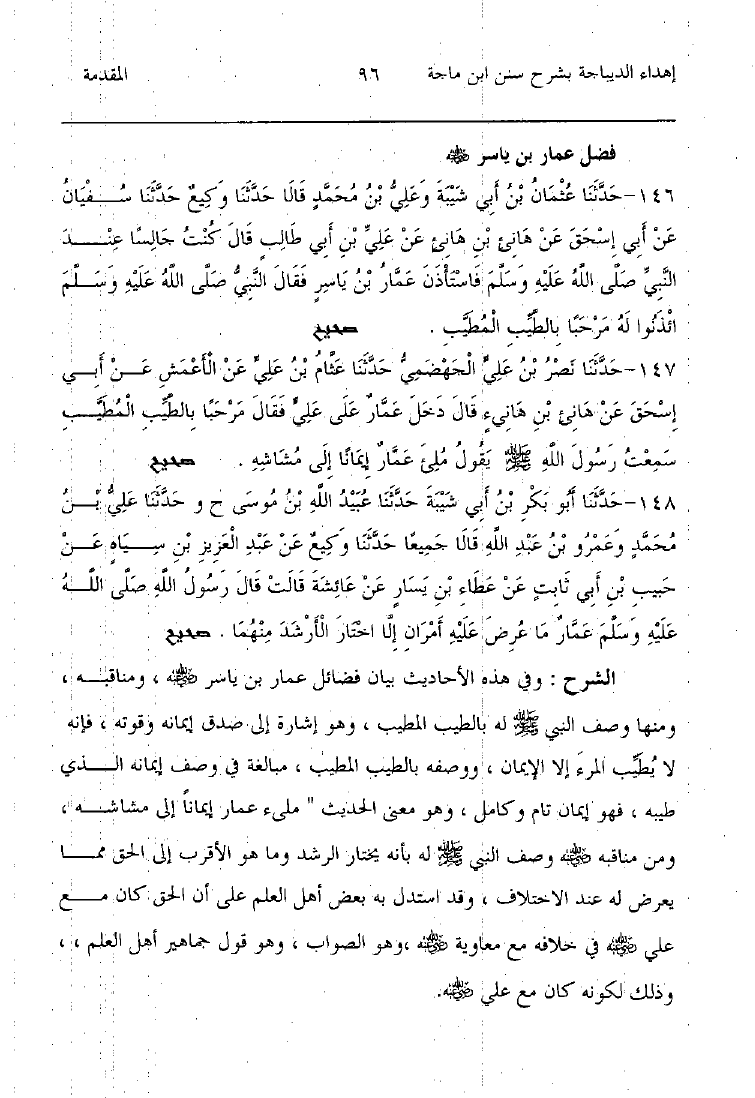 إهداء الديباجة بشرح سنن ابن ماجة ٩٦ المقدمة
فضل عمار بن ياسر ﵁
١٤٦-حَدَّثَنَا عُثْمَانُ بْنُ أَبِي شَيْبَةَ وَعَلِيُّ بْنُ مُحَمَّدٍ قَالَا حَدَّثَنَا وَكِيعٌ حَدَّثَنَا سُفْيَانُ
عَنْ أَبِي إِسْحَقَ عَنْ هَانِئِ بْنِ هَانِئٍ عَنْ عَلِيِّ بْنِ أَبِي طَالِبٍ قَالَ كُنْتُ جَالِسًا عِنْدَ
النَّبِيِّ صَلَّى اللَّهُ عَلَيْهِ وَسَلَّمَ فَاسْتَأْذَنَ عَمَّارُ بْنُ يَاسِرٍ فَقَالَ النَّبِيُّ صَلَّى اللَّهُ عَلَيْهِ وَسَلَّمَ
ائْذَنُوا لَهُ مَرْحَبًا بِالطَّيِّبِ الْمُطَيَّبِ . صحيح
١٤٧-حَدَّثَنَا نَصْرُ بْنُ عَلِيٍّ الْجَهْضَمِيُّ حَدَّثَنَا عَثَّامُ بْنُ عَلِيٍّ عَنْ الْأَعْمَشِ عَنْ أَبِي
إِسْحَقَ عَنْ هَانِئِ بْنِ هَانِيءٍ قَالَ دَخَلَ عَمَّارٌ عَلَى عَلِيٍّ فَقَالَ مَرْحَبًا بِالطَّيِّبِ الْمُطَيَّبِ
سَمِعْتُ رَسُولَ اللَّهِ ﷺ يَقُولُ مُلِئَ عَمَّارٌ إِيمَانًا إِلَى مُشَاشِهِ . صحيح
١٤٨-حَدَّثَنَا أَبُو بَكْرِ بْنُ أَبِي شَيْبَةَ حَدَّثَنَا عُبَيْدُ اللَّهِ بْنُ مُوسَى ح و حَدَّثَنَا عَلِيُّ بْنُ
مُحَمَّدٍ وَعَمْرُو بْنُ عَبْدِ اللَّهِ قَالَا جَمِيعًا حَدَّثَنَا وَكِيعٌ عَنْ عَبْدِ الْعَزِيزِ بْنِ سِيَاهٍ عَنْ
حَبِيبِ بْنِ أَبِي ثَابِتٍ عَنْ عَطَاءِ بْنِ يَسَارٍ عَنْ عَائِشَةَ قَالَتْ قَالَ رَسُولُ اللَّهِ صَلَّى اللَّهُ
عَلَيْهِ وَسَلَّمَ عَمَّارٌ مَا عُرِضَ عَلَيْهِ أَمْرَانِ إِلَّا اخْتَارَ الْأَرْشَدَ مِنْهُمَا . صحيح
الشرح : وفي هذه الأحاديث بيان فضائل عمار بن ياسر ﵁ ، ومناقبه ،
ومنها وصف النبي ﷺ له بالطيب المطيب ، وهو إشارة إلى صدق إيمانه وقوته ، فإنه
لا يُطَيِّب المرءَ إلا الإيمان ، ووصفه بالطيب المطيب ، مبالغة في وصف إيمانه الذي
طيبه ، فهو إيمان تام وكامل ، وهو معنى الحديث " مليء عمار إيماناً إلى مشاشه ،
ومن مناقبه ﵁ وصف النبي ﷺ له بأنه يختار الرشد وما هو الأقرب إلى الحق مما
يعرض له عند الاختلاف ، وقد استدل به بعض أهل العلم على أن الحق كان مع
علي ﵁ في خلافه مع معاوية ﵁ ،وهو الصواب ، وهو قول جماهير أهل العلم ، ،
وذلك لكونه كان مع علي ﵁.